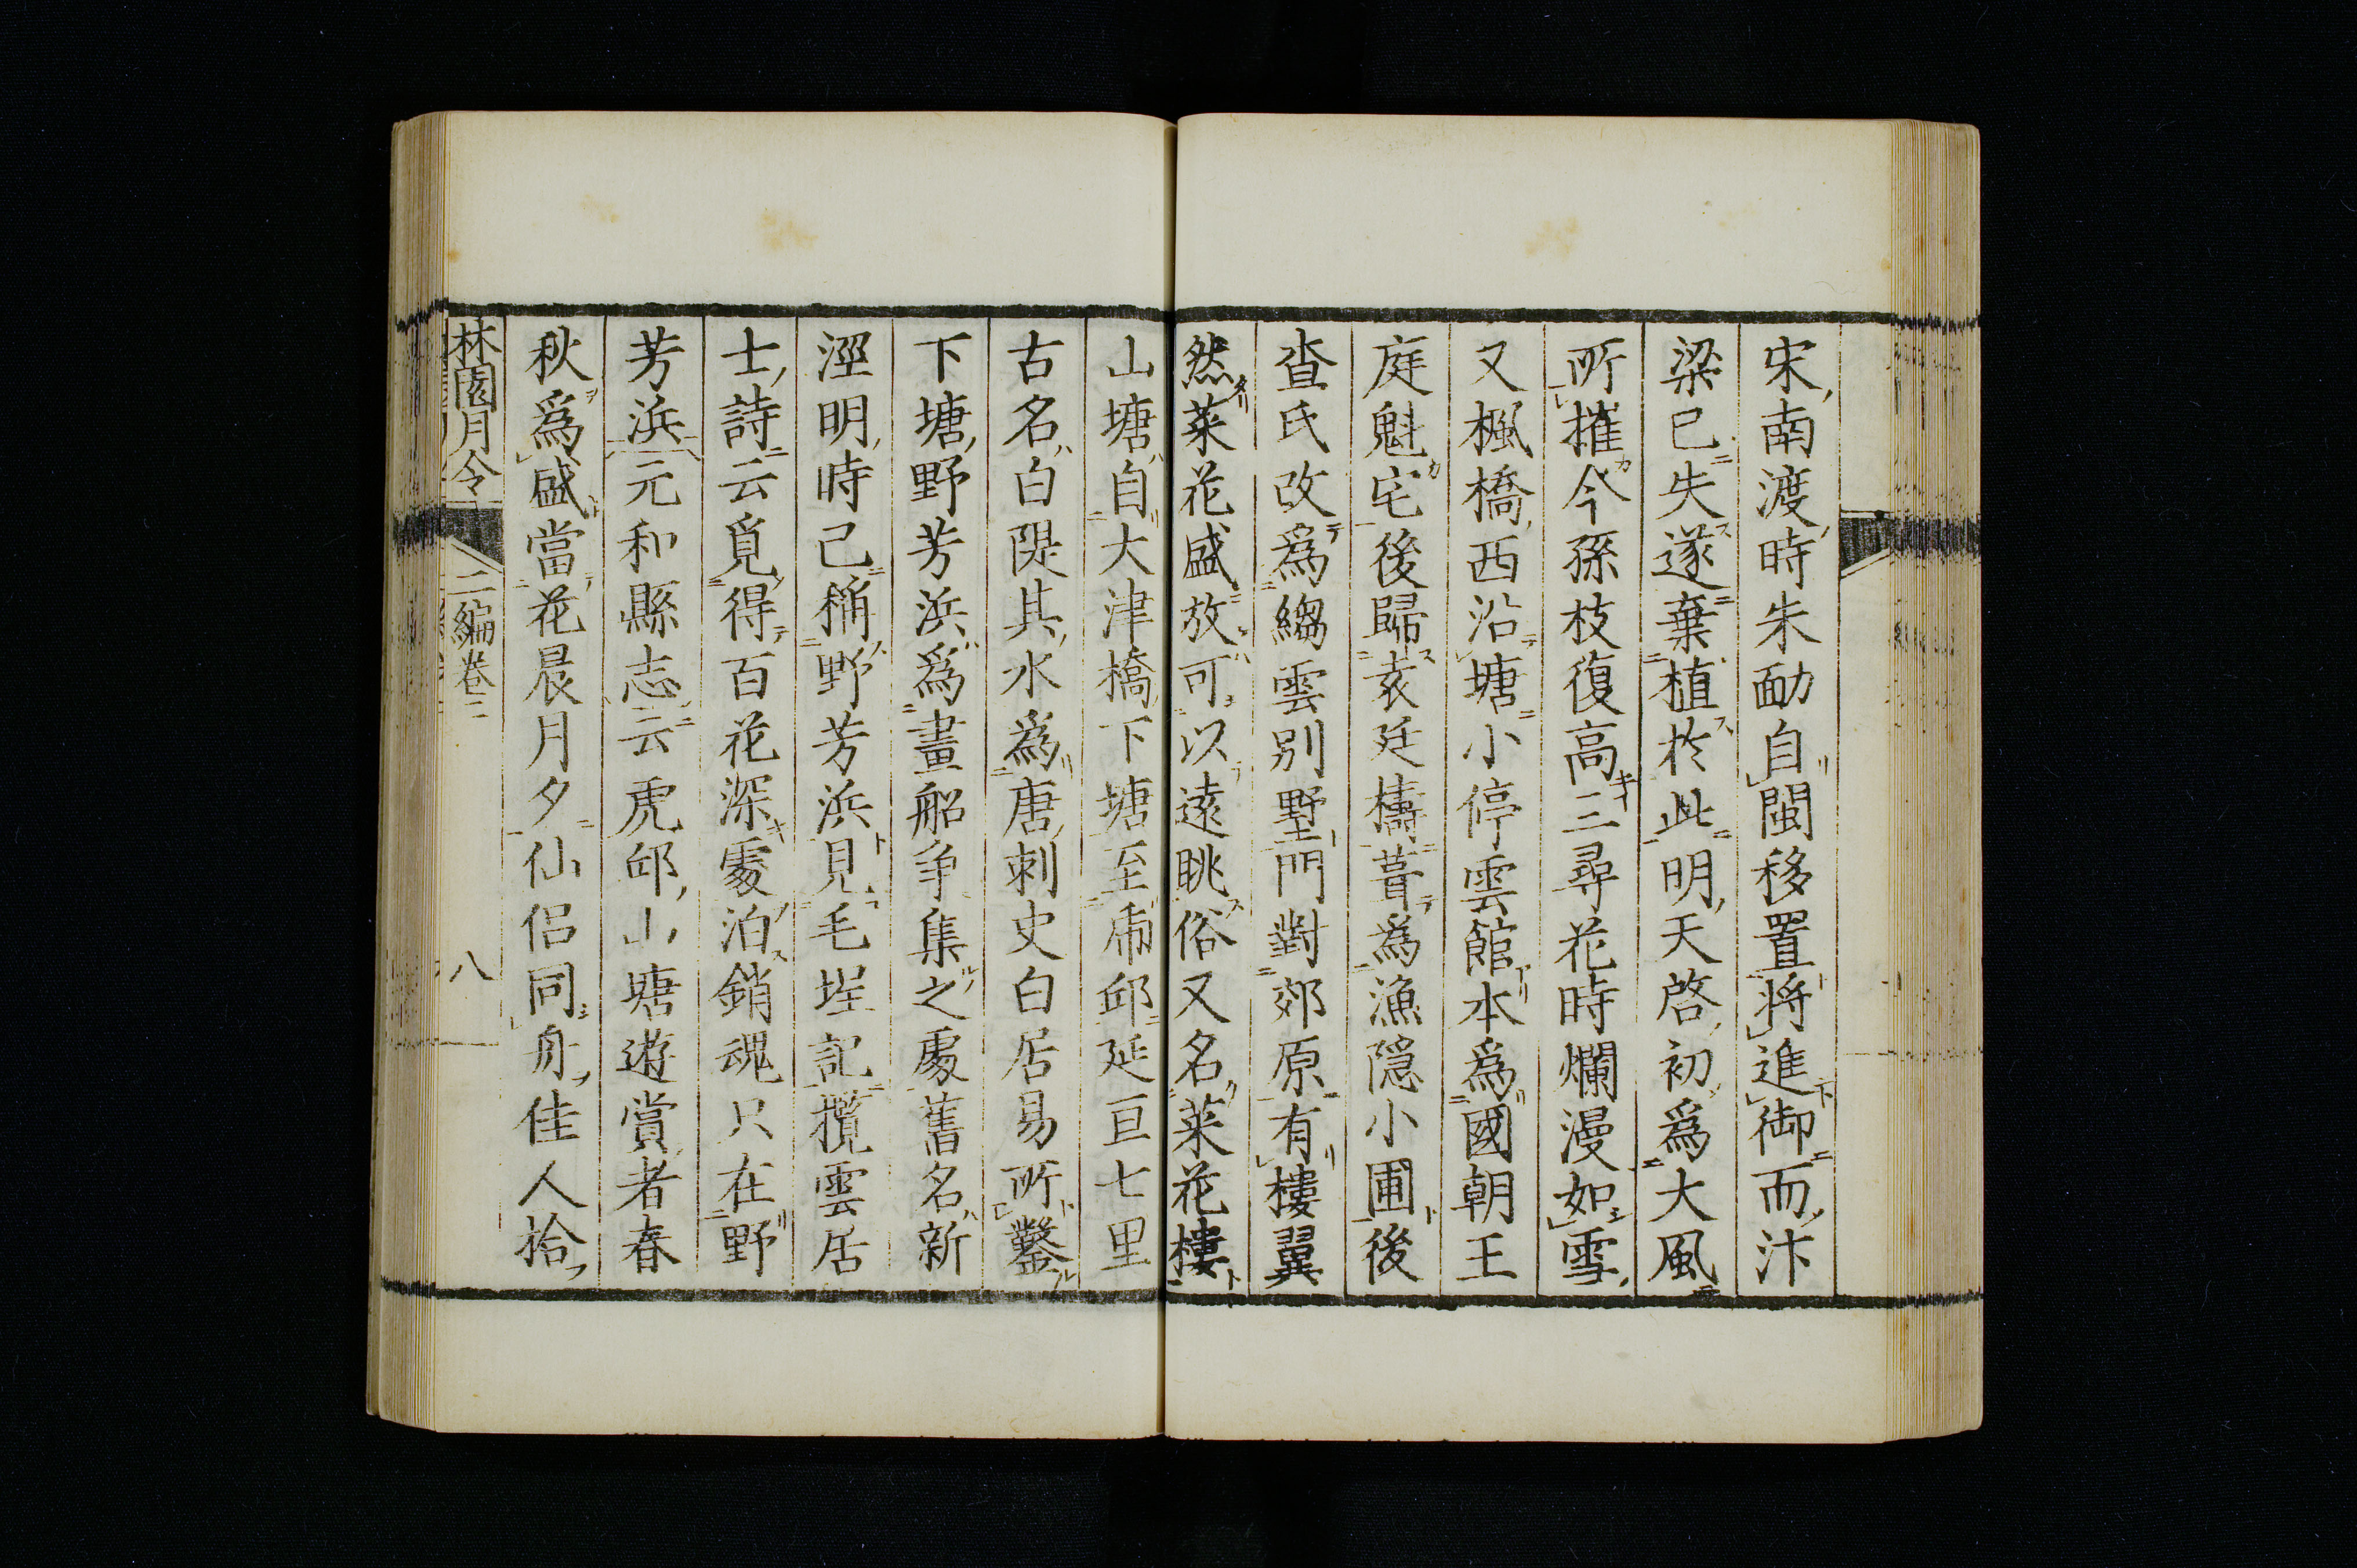 宋南渡時朱勔自閩移置將進御而汴
梁已失遂棄植於此明天啓初爲大風
所摧今孫枝復高三尋花時爛漫如雪
又楓橋西沿塘小停雲館本爲國朝王
庭魁宅後歸袁廷檮葺爲漁隱小圃後
查氏改爲縐雲別墅門對郊原有樓翼
然菜花盛放可以遠眺俗又名菜花樓
山塘自大津橋下塘至虎邱延亘七里
古名白隄其水爲唐刺史白居易所鑿
下塘野芳浜爲畫船爭集之處舊名新
涇明時已稱野芳浜見毛珵記攬雲居
士詩云覓得百花深處泊銷魂只在野
芳浜元和縣志云虎邱山塘遊賞者春
秋爲盛當花晨月夕仙侶同舟佳人拾
林園月令 二編卷二 八